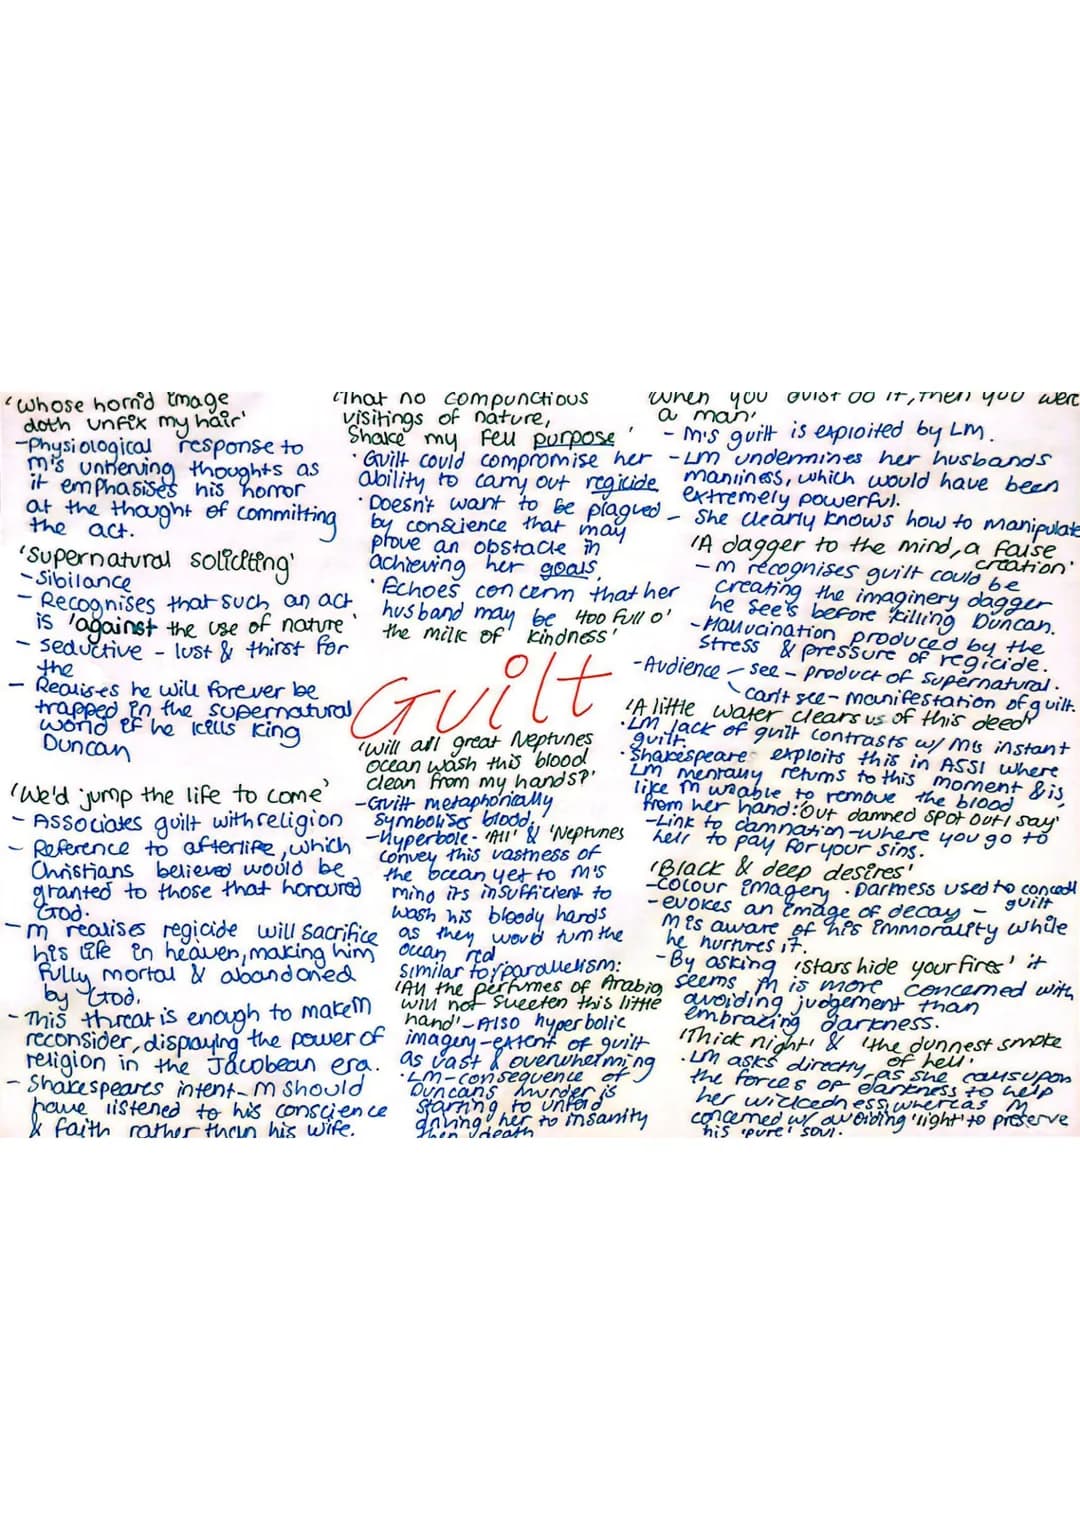 'whose horrid image
doth unfix my hair'
-Physiological response to
m's unnerving thoughts as
it emphasises his horror
at the thought of committing
the act.
'Supernatural soliciting'
- Sibilance
- Recognises that such an act
is 'against the use of nature'
- seductive - lust & thirst for
the
- Realises he will forever be
trapped in the supernatural
world if he kills King
Duncan
'We'd jump the life to come'
- Associates guilt with religion
- Reference to afterlife, which
Christians believed would be
granted to those that honoured
God.
- m realises regicide will sacrifice
his life in heaven, making him
fully mortal & abandoned
by God.
- This threat is enough to make m
reconsider, displaying the power of
religion in the Jacobean era.
- Shakespeares intent- M should
have listened to his conscience
& faith rather than his wife.
'That no compunctious
visitings of nature,
Shake my fell purpose'
· Guilt could compromise her
ability to carry out regicide
· Doesn't want to be plagued
by conscience that may
prove an obstacle in
achieving her goals.
· Echoes concern that her
husband may be 'too full o'
the milk of kindness'
Guilt
'Will all great Neptunes
ocean wash this blood
clean from my hands?'
-Guilt metaphorically
symbolises blood.
-Hyperbole- 'All' & 'Neptunes
convey this vastness of
the ocean yet to M's
mind its insufficient to
wash his bloody hands
as they would turn the
ocean red
similar to/parallelism:
'All the perfumes of Arabia
will not sweeten this little
hand'-Also hyperbolic
imagery-extent of guilt
as vast & overwhelming
·LM-consequence of
Duncans murder is
starting to unfold
driving her to insanity
then death
when you durst do it, then you were
a man'
- M's guilt is exploited by LM.
- LM undermines her husbands
manliness, which would have been
extremely powerful.
- She clearly knows how to manipulate
'A dagger to the mind, a false
creation'
- m recognises guilt could be
creating the imaginery dagger
he see's before killing Duncan.
- Hallucination produced by the
stress & pressure of regicide.
-Audience - see - product of supernatural.
can't see - manifestation of guilt.
'A little water clears us of this deed'
·LM lack of guilt contrasts w/ M's instant
guilt.
·Shakespeare exploits this in A5S1 where
LM mentally returns to this moment & is,
like m unable to remove the blood
from her hand: 'Out damned spot out I say'
-Link to damnation-where you go to
hell to pay for your sins.
'Black & deep desires'
-colour imagery · Darkness used to conceal
guilt
-evokes an image of decay -
M is aware of his immorality while
he nurtures it.
-By asking 'stars hide your fires' it
seems M is more concerned with
avoiding judgement than
embracing darkness.
'Thick night' & 'the dunnest smoke
of hell'
·LM asks directly, as she calls upon
the forces of darkness to help
her wickedness, whereas M
concerned w/ avoiding 'light' to preserve
his 'pure' soul.